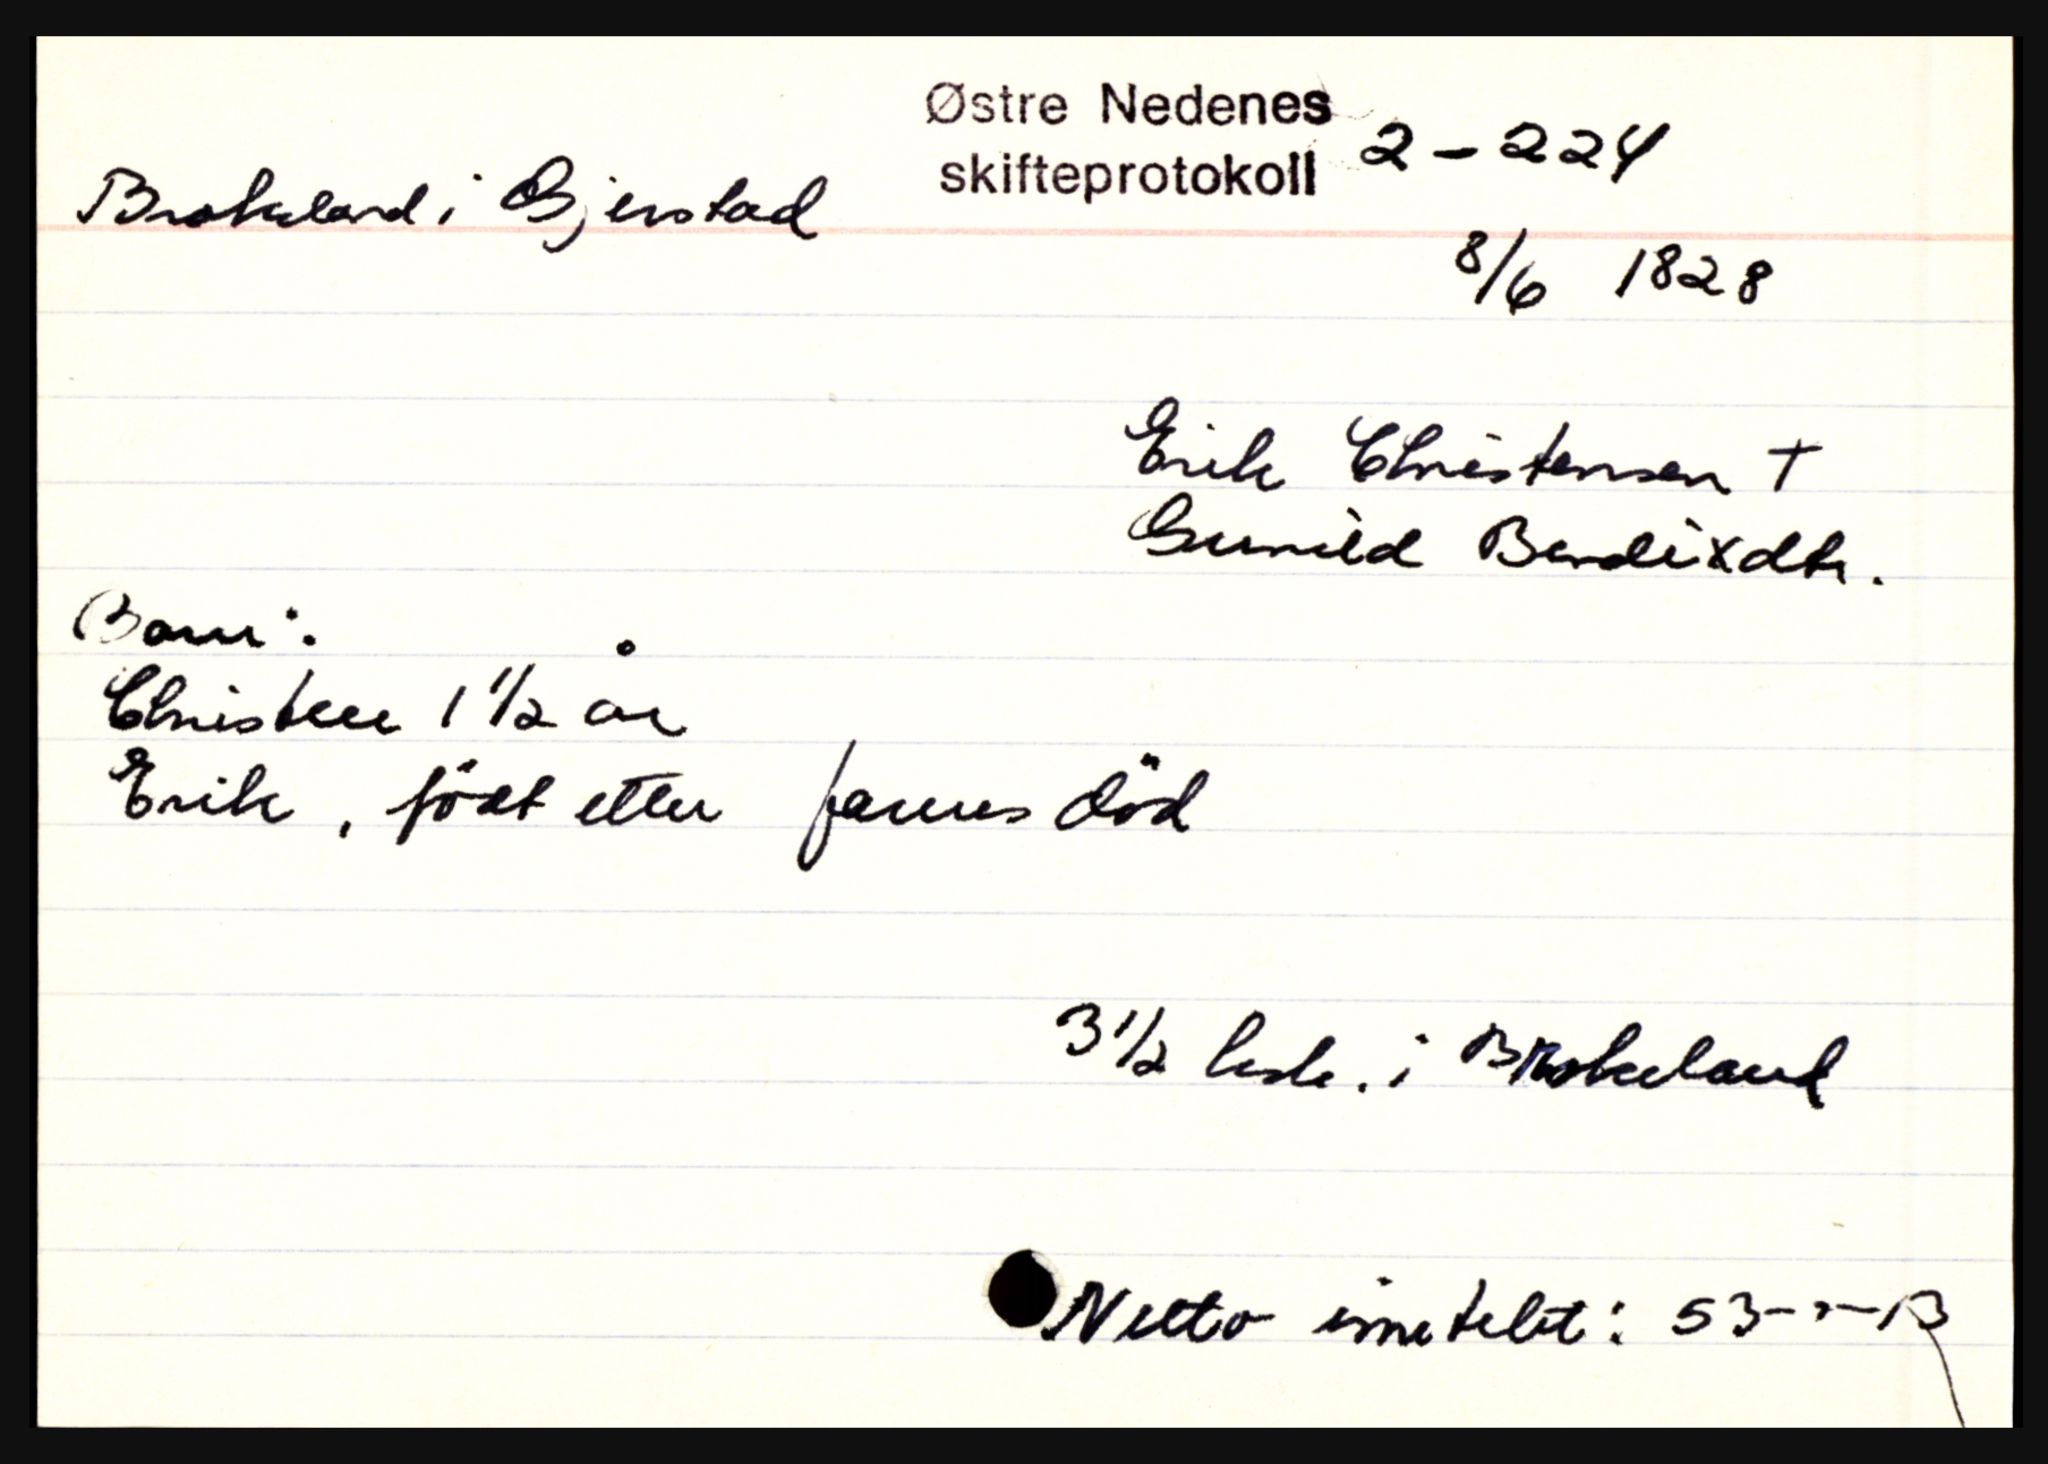 Østre Nedenes
skifteprotokoll 2-224
Brokeland i Gjerstad
8/6 1828
Erik Christensen †
Gunild Bendixdtr.
Barn:
Christen 1 1/2 år
Erik, födt etter farens död
3 1/2 lesk. i Brokeland
Netto inntekt: 53-